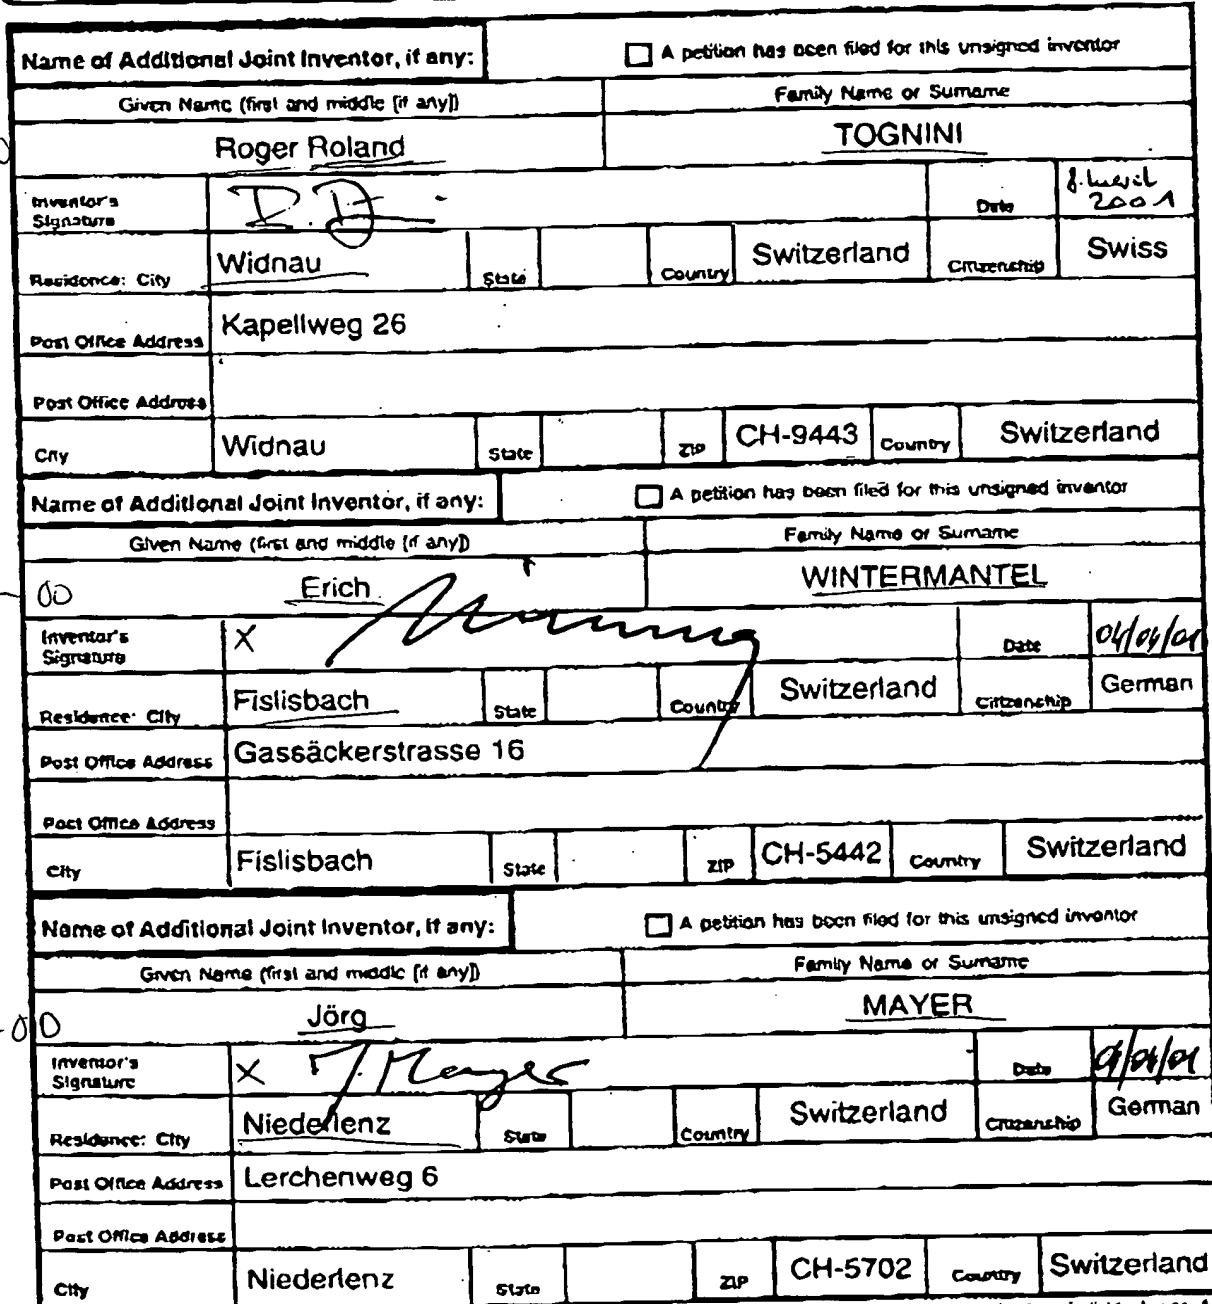 Name of Additional Joint Inventor, if any: A petition has been filed for this unsigned inventor
Given Name (first and middle [if any]) Family Name or Surname
Roger Roland TOGNINI
Inventor's Signature Date 2001
Residence: City Widnau State Country Switzerland Citizenship Swiss
Post Office Address Kapellweg 26
Post Office Address
City Widnau State ZIP CH-9443 Country Switzerland
Name of Additional Joint Inventor, if any: A petition has been filed for this unsigned inventor
Given Name (first and middle [if any]) Family Name or Surname
00 Erich WINTERMANTEL
Inventor's Signature X Date 04/04/01
Residence: City Fislisbach State Country Switzerland Citizenship German
Post Office Address Gassäckerstrasse 16
Post Office Address
City Fislisbach State ZIP CH-5442 Country Switzerland
Name of Additional Joint Inventor, if any: A petition has been filed for this unsigned inventor
Given Name (first and middle [if any]) Family Name or Surname
00 Jörg MAYER
Inventor's Signature X J. Mayer Date
Residence: City Niederlenz State Country Switzerland Citizenship German
Post Office Address Lerchenweg 6
Post Office Address
City Niederlenz State ZIP CH-5702 Country Switzerland